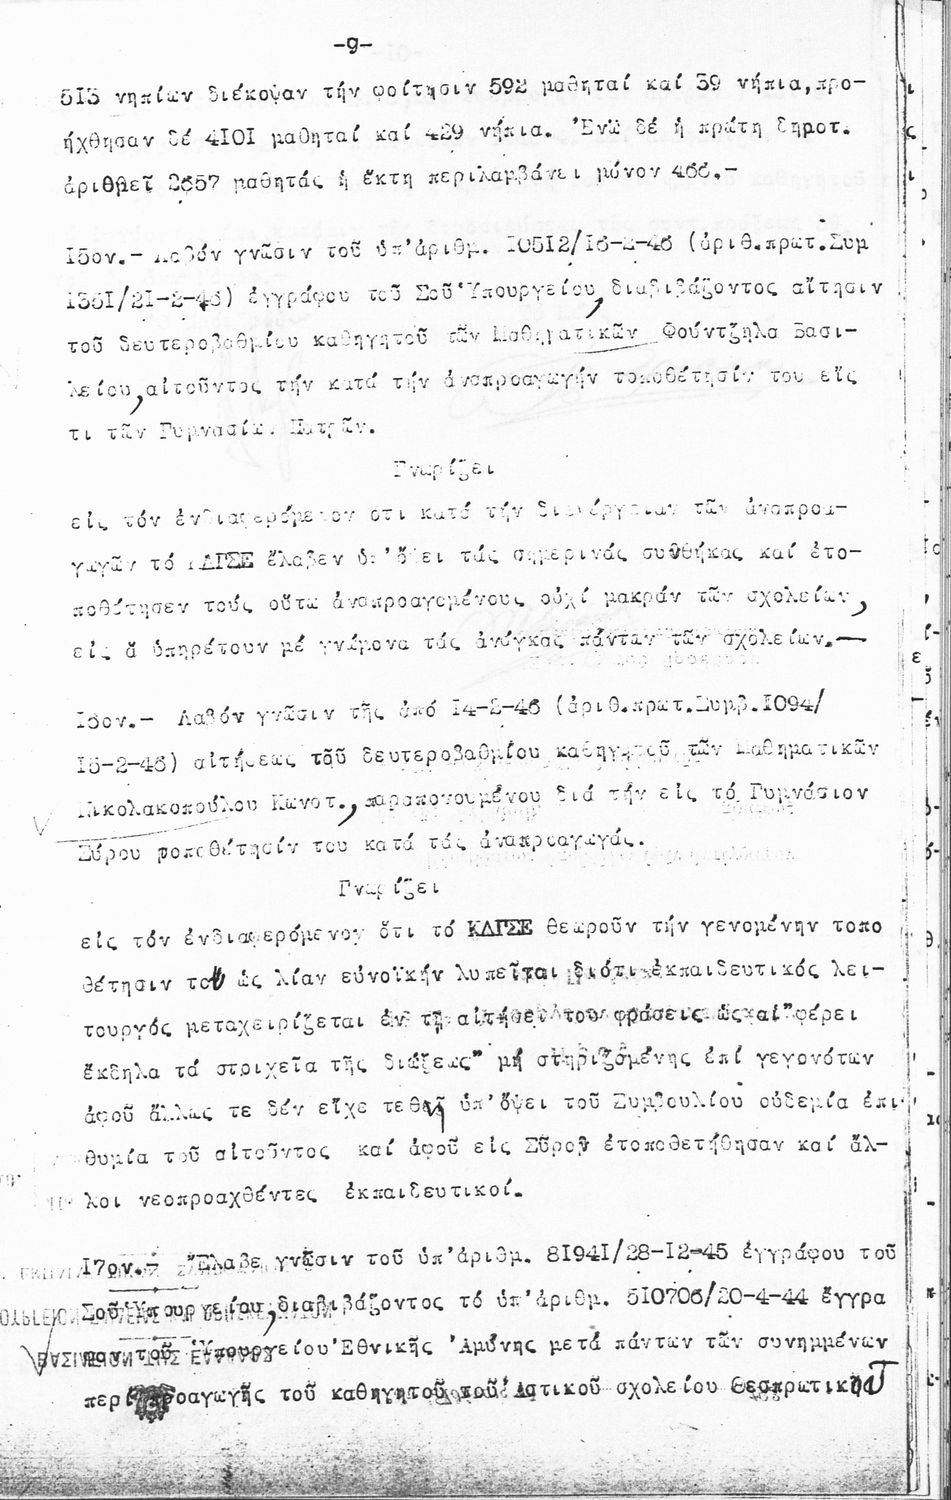 -9-
513 νηπίων διέκοψαν τήν φοίτησιν 592 μαθηταί καί 39 νήπια,προ-
ήχθησαν δέ 4101 μαθηταί καί 429 νήπια. Ἐνῶ δέ ἡ πρώτη δημοτ.
ἀριθμεῖ 2657 μαθητάς ἡ ἕκτη περιλαμβάνει μόνον 466.-
15ον.- Λαβόν γνῶσιν τοῦ ὑπ'ἀριθμ. 10512/16-2-46 (ἀριθ.πρωτ.Συμ
1361/21-2-46) ἐγγράφου τοῦ Σοῦ Ὑπουργείου, διαβιβάζοντος αἴτησιν
τοῦ δευτεροβαθμίου καθηγητοῦ τῶν Μαθηματικῶν Φούντζηλα Βασι-
λείου,αἰτοῦντος τήν κατά τήν ἀναπροαγωγήν τοποθέτησίν του εἴς
τι τῶν Γυμνασίων Πατρῶν.
Γνωρίζει
εἰς τόν ἐνδιαφερόμενον οτι κατά τήν διενέργειαν τῶν ἀναπροα-
γωγῶν τό ΚΔΓΣΕ ἔλαβεν ὑπ'ὄψει τάς σημερινάς συνθήκας καί ἐτο-
ποθέτησεν τούς οὕτω ἀναπροαγομένους οὐχί μακράν τῶν σχολείων,
εἰς ἅ ὑπηρέτουν μέ γνώμονα τάς ἀνάγκας πάντων τῶν σχολείων.-
16ον.- Λαβόν γνῶσιν τῆς ἀπό 14-2-46 (ἀριθ.πρωτ.Συμβ.1094/
15-2-46) αἰτήσεως τοῦ δευτεροβαθμίου καθηγητοῦ τῶν Μαθηματικῶν
Νικολακοπούλου Κωνστ., παραπονουμένου διά τήν εἰς τό Γυμνάσιον
Σύρου τοποθέτησίν του κατά τάς ἀναπροαγωγάς.
Γνωρίζει
εἰς τόν ἐνδιαφερόμενον ὅτι τό ΚΔΓΣΕ θεωροῦν τήν γενομένην τοπο
θέτησιν του ὡς λίαν εὐνοϊκήν λυπεῖται διότι ἐκπαιδευτικός λει-
τουργός μεταχειρίζεται ἐν τῇ αἰτήσει του φράσεις ὡς αἱ "φέρει
ἔκδηλα τά στοιχεῖα τῆς διώξεως" μή στηριζομένης ἐπί γεγονότων
ἀφοῦ ἄλλως τε δέν εἶχε τεθῆ ὑπ'ὄψει τοῦ Συμβουλίου οὐδεμία ἐπι-
θυμία τοῦ αἰτοῦντος καί ἀφοῦ εἰς Σῦρον ἐτοποθετήθησαν καί ἄλ-
λοι νεοπροαχθέντες ἐκπαιδευτικοί.
17ον.- Ἔλαβε γνῶσιν τοῦ ὑπ'ἀριθμ. 81941/28-12-45 ἐγγράφου τοῦ
Σοῦ Ὑπουργείου, διαβιβάζοντος τό ὑπ'ἀριθμ. 510706/20-4-44 ἔγγρα
φον τοῦ Ὑπουργείου Ἐθνικῆς Ἀμύνης μετά πάντων τῶν συνημμένων
περί προαγωγῆς τοῦ καθηγητοῦ τοῦ Ἀστικοῦ σχολείου Θεσπρωτικοῦ